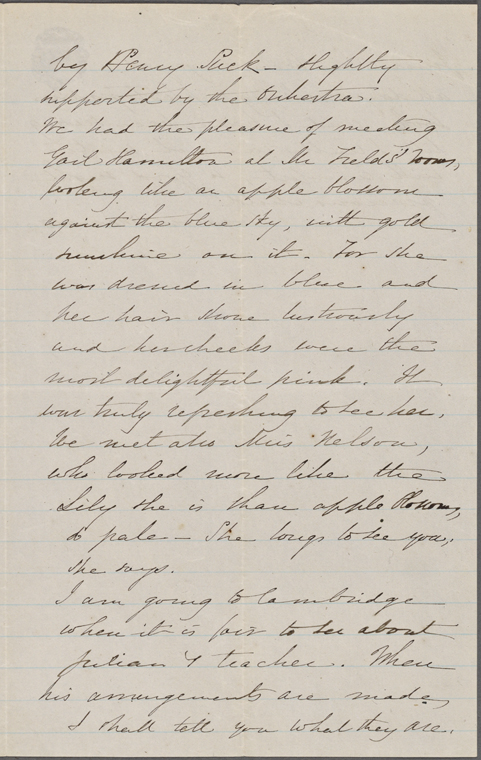 by Henry Suck – slightly
supported by the Orchestra.
We had the pleasure of meeting
Gail Hamilton at Mr Fields' rooms,
looking like an apple blossom
against the blue sky, with gold
sunshine on it. For she
was dressed in blue and
her hair shone lustrously
and her cheeks were the
most delightful pink. It
was truly refreshing to see her.
We met also Miss Nelson,
who looked more like the
Lily she is than apple blossoms,
so pale – She longs to see you,
she says.
I am going to Cambridge
when it is fair to see about
Julian & teacher. When
his arrangements are made,
I shall tell you what they are.